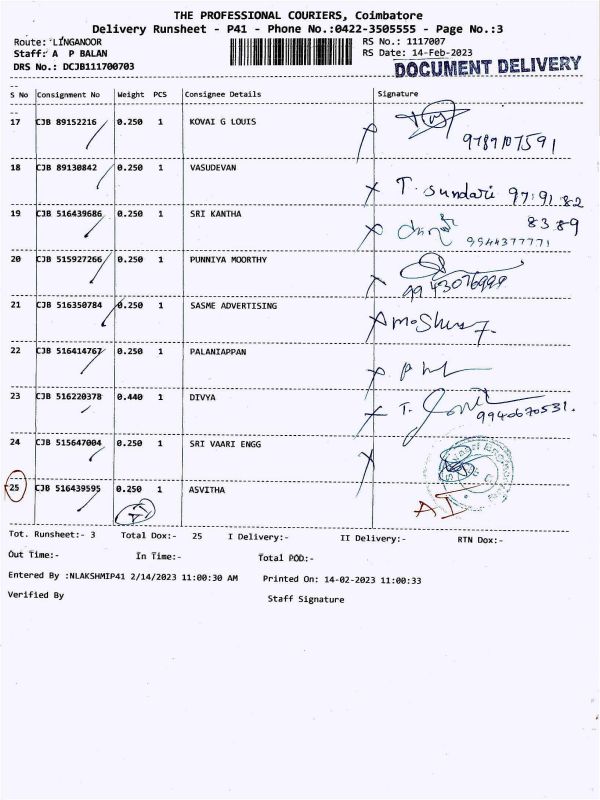 THE PROFESSIONAL COURIERS, Coimbatore
Delivery Runsheet - P41 - Phone No.:0422-3505555 - Page No.:3
Route: LINGANOOR
RS No.: 1117007
Staff: A P BALAN
RS Date: 14-Feb-2023
DRS No.: DCJB111700703
DOCUMENT DELIVERY
S No Consignment No Weight PCS Consignee Details Signature
17 CJB 89152216 0.250 1 KOVAI G LOUIS
9789107591
18 CJB 89130842 0.250 1 VASUDEVAN
T. Sundari 97 91 82
83 89
19 CJB 516439686 0.250 1 SRI KANTHA
9944377771
20 CJB 515927266 0.250 1 PUNNIYA MOORTHY
21 CJB 516350784 0.250 1 SASME ADVERTISING
22 CJB 516414767 0.250 1 PALANIAPPAN
23 CJB 516220378 0.440 1 DIVYA
T.
9940670531.
24 CJB 515647004 0.250 1 SRI VAARI ENGG
25 CJB 516439595 0.250 1 ASVITHA
Tot. Runsheet:- 3 Total Dox:- 25 I Delivery:- II Delivery:- RTN Dox:-
Out Time:- In Time:- Total POD:-
Entered By :NLAKSHMIP41 2/14/2023 11:00:30 AM Printed On: 14-02-2023 11:00:33
Verified By Staff Signature